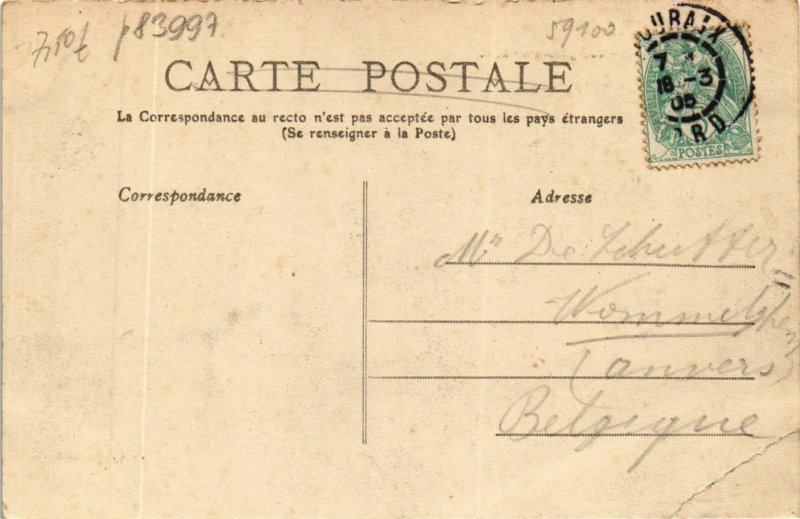 7,50f p83997 59100
CARTE POSTALE
La Correspondance au recto n'est pas acceptée par tous les pays étrangers
(Se renseigner à la Poste)
ROUBAIX
7
18 -3
05
NORD
POSTES
Correspondance
Adresse
De Schutter
Wommelghem
(anvers)
Belgique